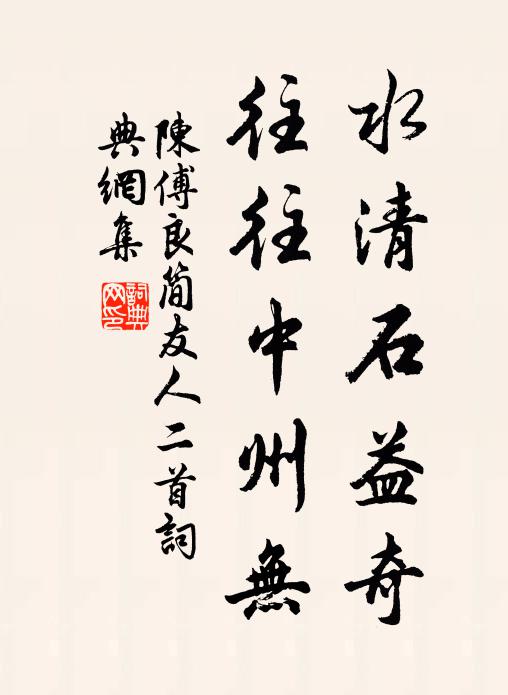 水清石益奇
往往中州無
陳傅良簡友人二首詞
典網集
詞典網印